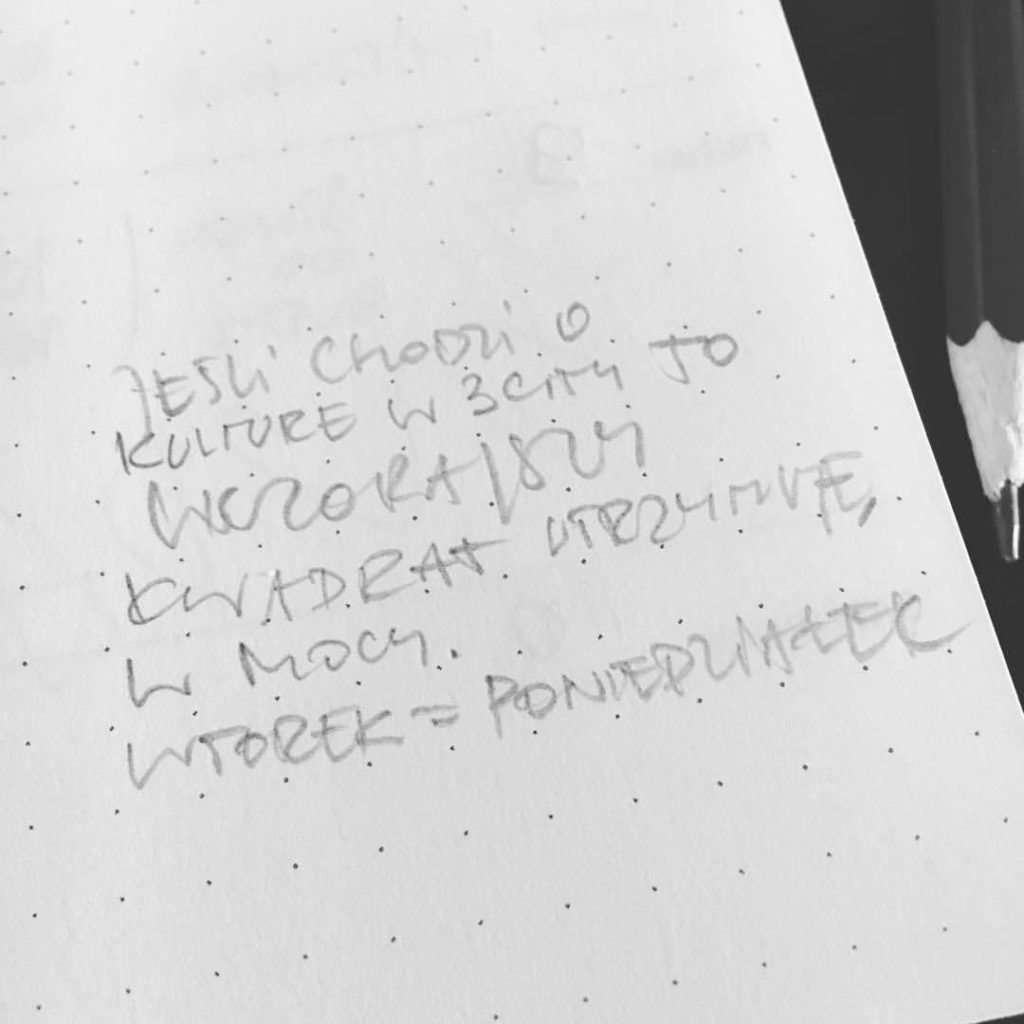 JEŚLI CHODZI O
KULTURE W 3CITY TO
WCZORAJSZY
KWADRAT UTRZYMUJĘ
W MOCY.
WTOREK = PONIEDZIAŁEK